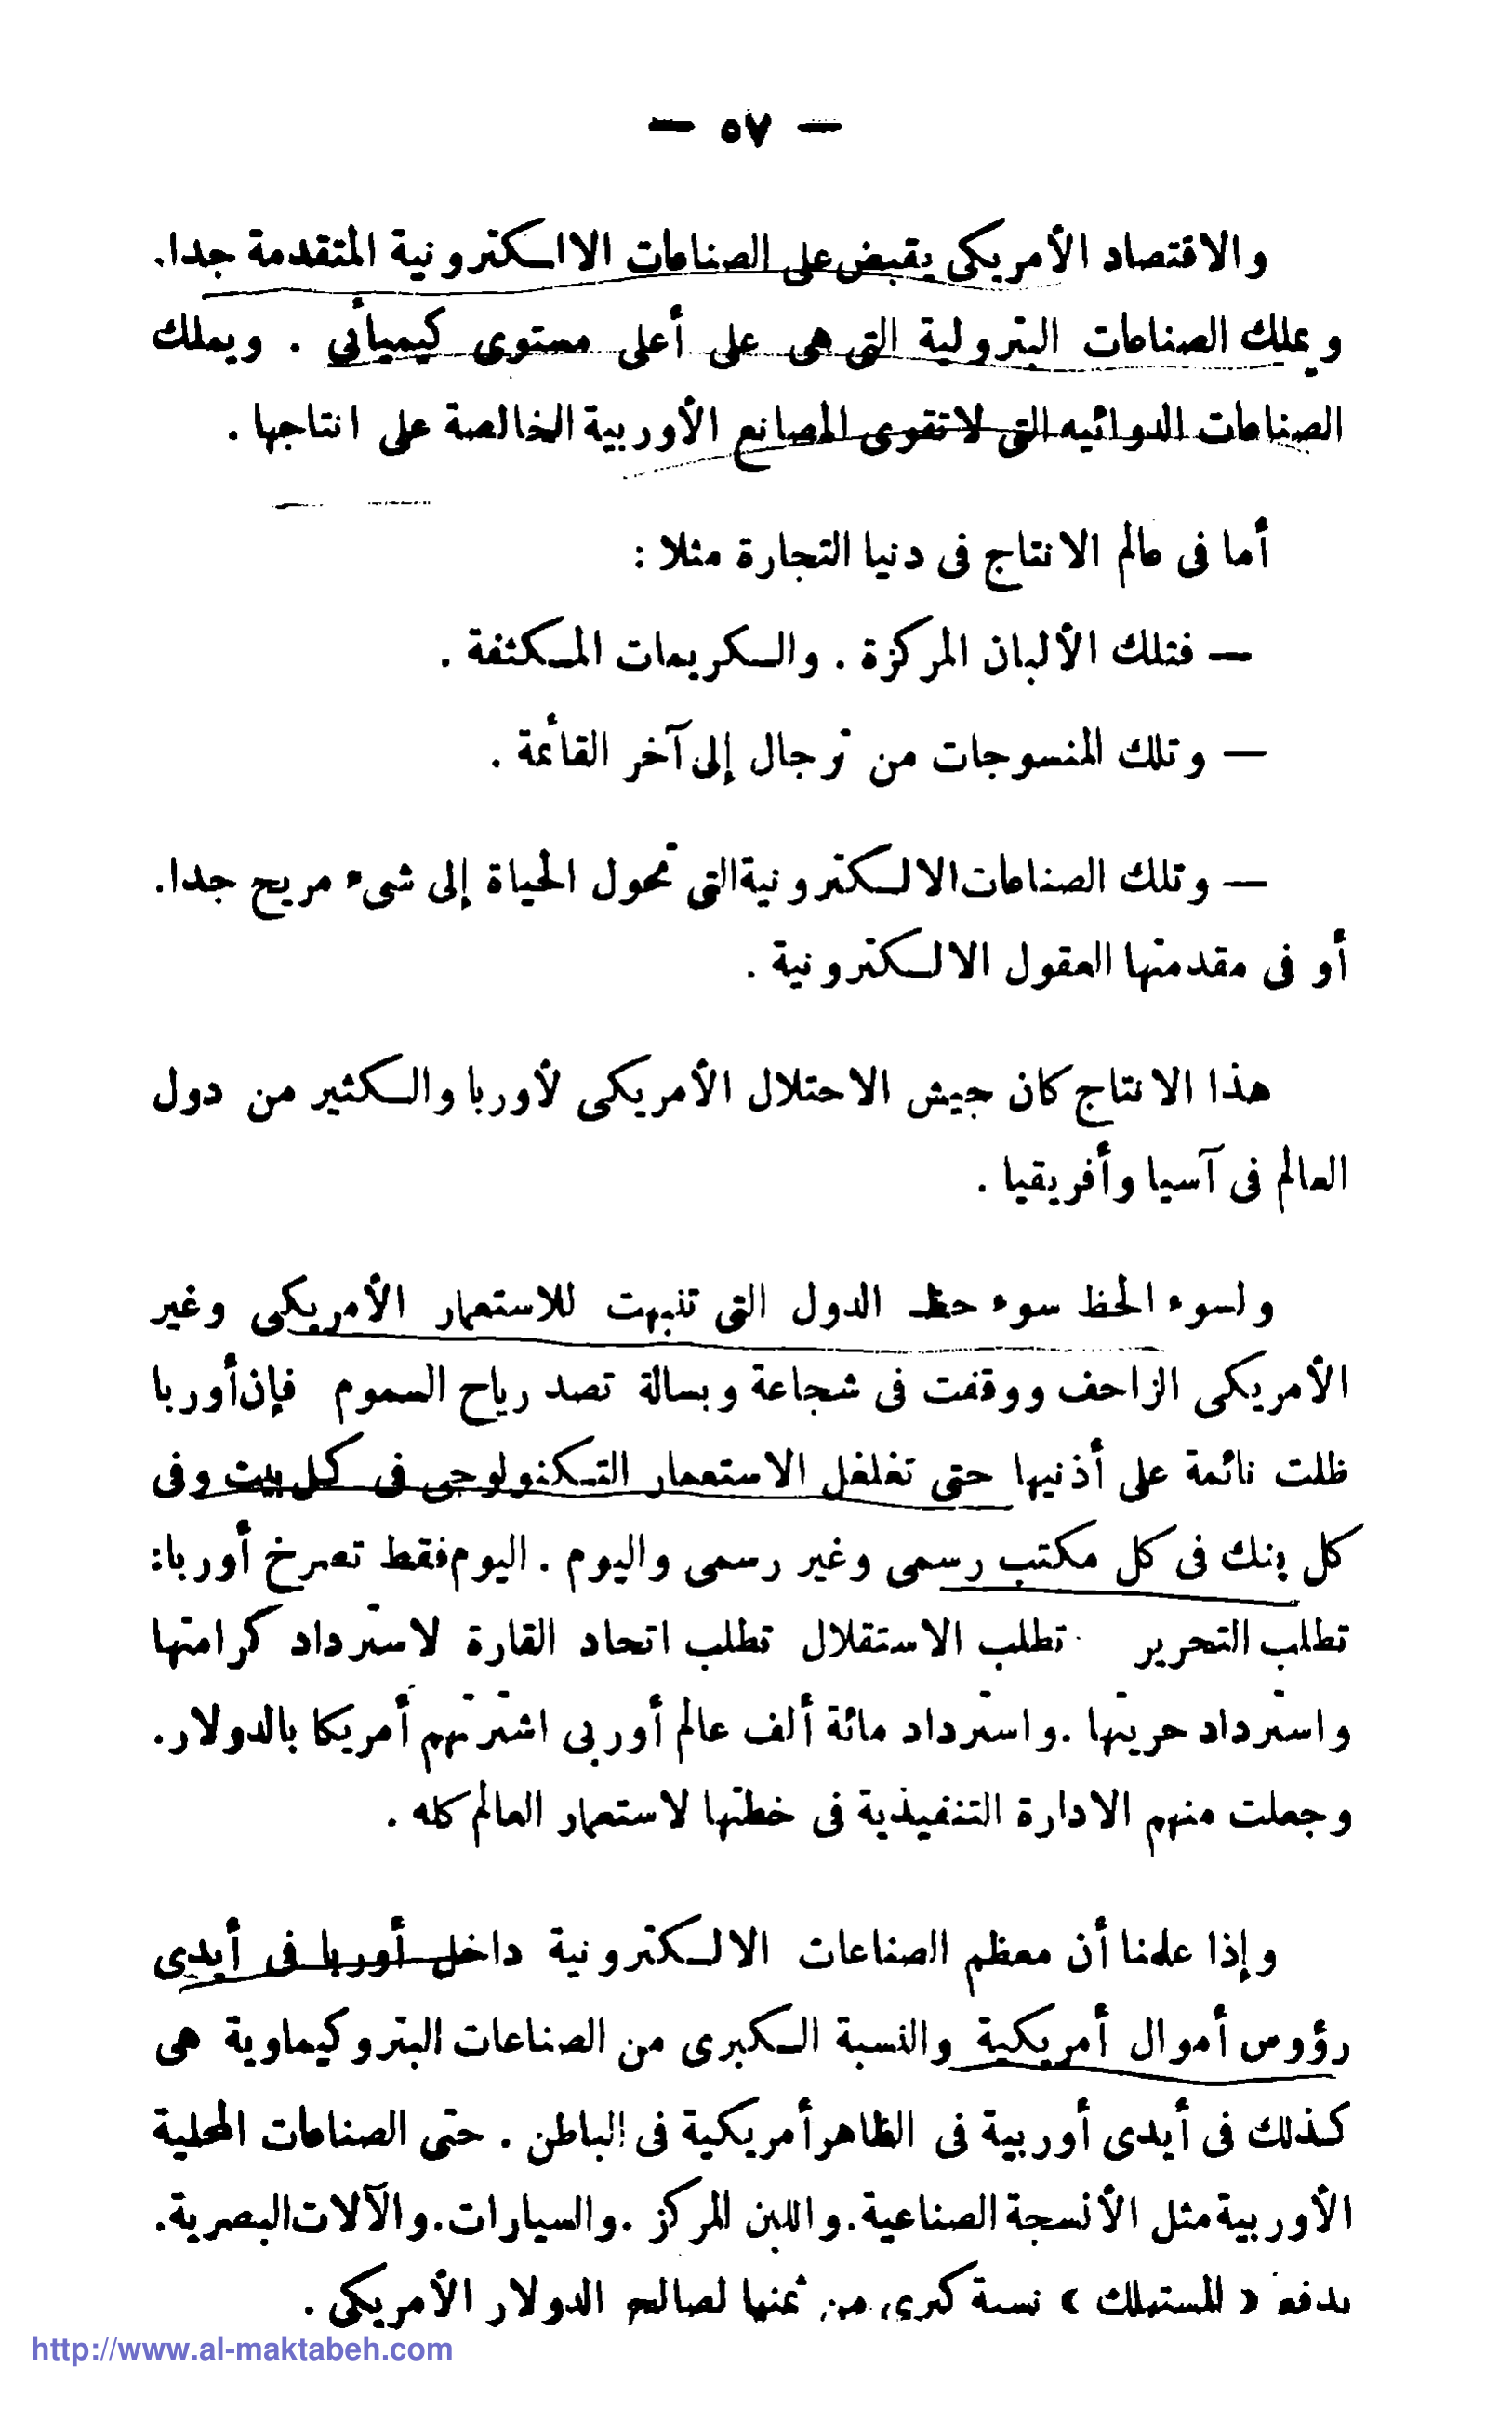 — ٥٧ —
والاقتصاد الأمريكى يقبض على الصناعات الاالكترونية المتقدمة جدا.
ويملك الصناعات البترولية التى هى على أعلى مستوى كيميائى . ويملك
الصناعات الدوائيه التى لاتقوى المصانع الأوربية الخالصة على انتاجها .
أما فى عالم الانتاج فى دنيا التجارة مثلا :
— فتلك الألبان المركزة . والكريمات المكثفة .
— وتلك المنسوجات من ترجال إلى آخر القائمة .
— وتلك الصناعات الالكترونية التى تحول الحياة إلى شىء مريح جدا.
أو فى مقدمتها العقول الالكترونية .
هذا الانتاج كان جيش الاحتلال الأمريكى لأوربا والكثير من دول
العالم فى آسيا وأفريقيا .
ولسوء الحظ سوء حظ الدول التى تنبهت للاستعمار الأمريكى وغير
الأمريكى الزاحف ووقفت فى شجاعة وبسالة تصد رياح السموم فإن أوربا
ظلت نائمة على أذنيها حتى تغلغل الاستعمار التكنولوجى فى كل بيت وفى
كل بنك فى كل مكتب رسمى وغير رسمى واليوم . اليوم فقط تصرخ أوربا:
تطلب التحرير . تطلب الاستقلال تطلب اتحاد القارة لاسترداد كرامتها
واسترداد حريتها .واسترداد مائة ألف عالم أوربى اشترتهم أمريكا بالدولار.
وجعلت منهم الادارة التنفيذية فى خطتها لاستعمار العالم كله .
وإذا علمنا أن معظم الصناعات الالكترونية داخل أوربا فى أيدى
رؤوس أموال أمريكية والنسبة الكبرى من الصناعات البتروكيماوية هى
كذلك فى أيدى أوربية فى الظاهر أمريكية فى الباطن . حتى الصناعات المحلية
الأوربية مثل الأنسجة الصناعية.واللبن المركز .والسيارات.والآلات البصرية.
يدفع « المستهلك » نسبة كبرى من ثمنها لصالح الدولار الأمريكى .
http://www.al-maktabeh.com